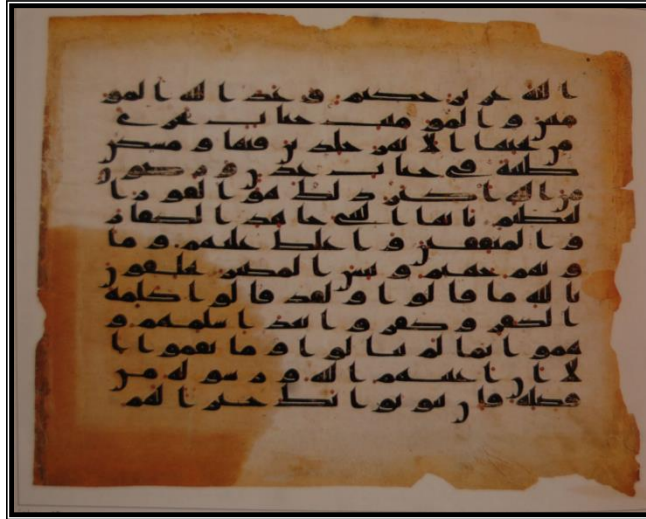 الله عزيز حكيم وعد الله المؤ
منين والمؤمنت جنات تجري
من تحتها الانهر خلدين فيها ومسكن
طيبة في جنات عدن ورضون
من الله اكبر ذلك هو الفوز ا
لعظيم يايها النبي جاهد الكفار
والمنفقين واغلظ عليهم وما
ويهم جهنم وبئس المصير يحلفون
بالله ما قالوا ولقد قالوا كلمة
الكفر وكفروا بعد اسلمهم و
هموا بما لم ينالوا وما نقموا ا
لا ان اغنيهم الله ورسوله من
فضله فان يتوبوا يك خيرا لهم